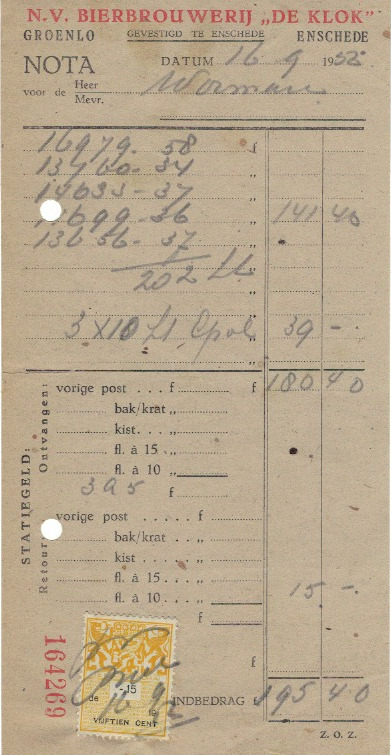 N.V. BIERBROUWERIJ „DE KLOK"
GROENLO GEVESTIGD TE ENSCHEDE ENSCHEDE
NOTA DATUM 16 9 1952
voor de Heer
Mevr.
16979. 58 f
13700 - 34 „
14635 - 37 „
11699 - 36 „ 141 40
13656 - 37 „
202 Lt. „
3 x 10 Lt. „ 39 -
STATIEGELD:
Ontvangen:
vorige post . . . f f 180 40
bak/krat „
kist . . . „
fl. à 15 . . . „
fl. à 10 „
395 f
Retour
vorige post . . . . . f
bak/krat . „
kist . . . . „
fl. à 15 . . . . „ 15 -
fl. à 10 . . „
f
164269
f
-.15
de 19
VIJFTIEN CENT
INDBEDRAG 195 40
Z. O. Z.